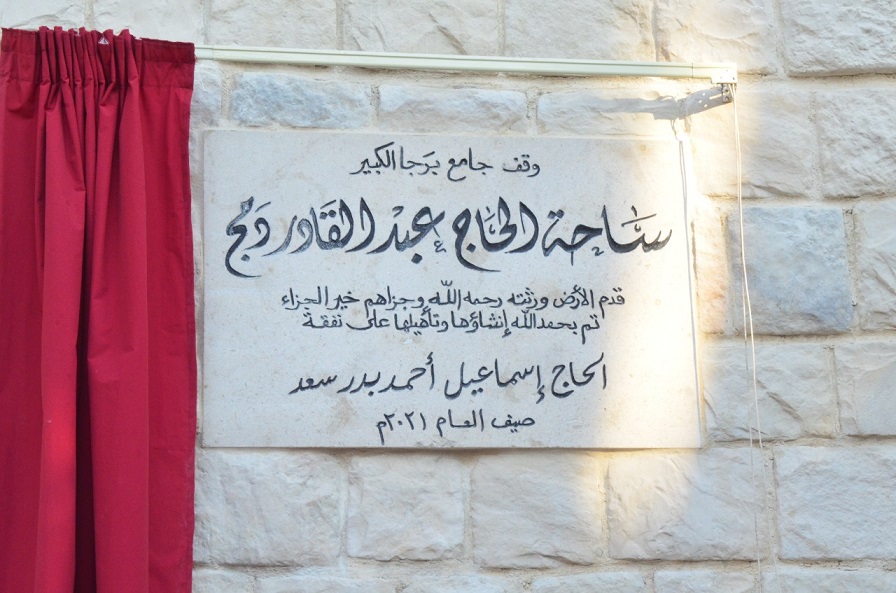 وقف جامع بَرجا الكبير
سَاحة الحَاج عبْد القَادر دَمج
قدم الأرض ورثته رحمه اللّه وجزاهم خير الجزاء
تم بحمد اللّه إنشاؤها وتأهيلها على نفقة
الحاج إسماعيل أحمد بدر سعد
صيف العام ٢٠٢١م